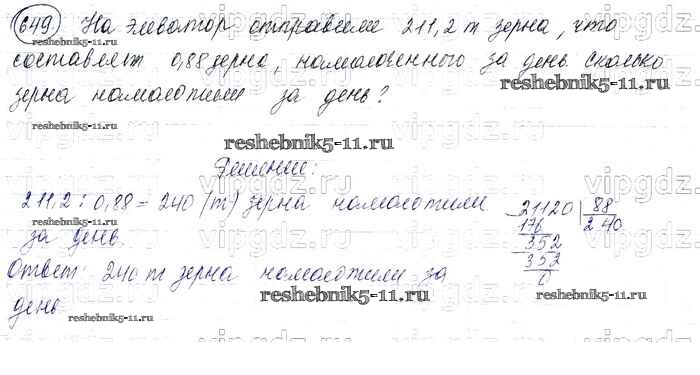 649. На элеватор отправили 211,2 т зерна, что
составляет 0,88 зерна, намолоченного за день. Сколько
зерна намолотили за день?
reshebnik5-11.ru
reshebnik5-11.ru
reshebnik5-11.ru
Решение:
211,2 : 0,88 = 240 (т) зерна намолотили
за день.
Ответ: 240 т зерна намолотили за
день
21120 | 88
176 240
352
352
0
reshebnik5-11.ru
reshebnik5-11.ru
reshebnik5-11.ru
vipgdz.ru
vipgdz.ru
vipgdz.ru